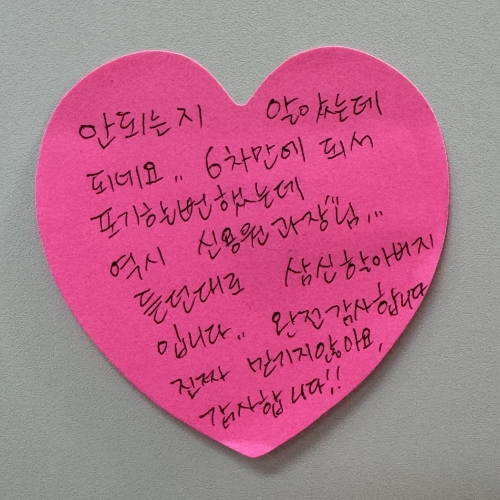 안되는지 알았는데
되네요.. 6차만에 되서
포기할뻔했는데
역시 신용원과장님...
듣던대로 삼신할아버지
입니다.. 완전감사합니다
진짜 믿기지않아요,
감사합니다!!